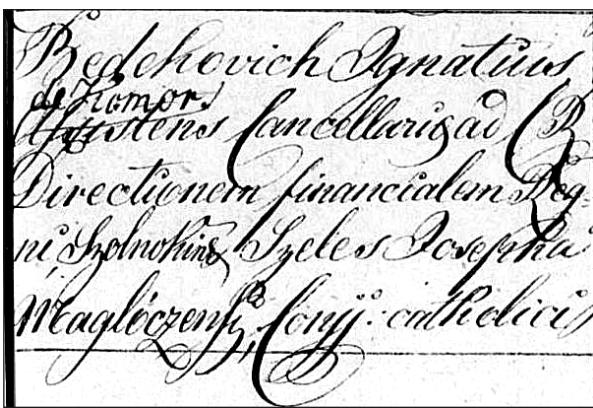 Bedekovich Ignatius
de Kompor.
Cancellariæ ad
Directionem financialem Reg-
ni, Szolnokini Szeles Josepha
Maglóczensis, Conjj: catholici